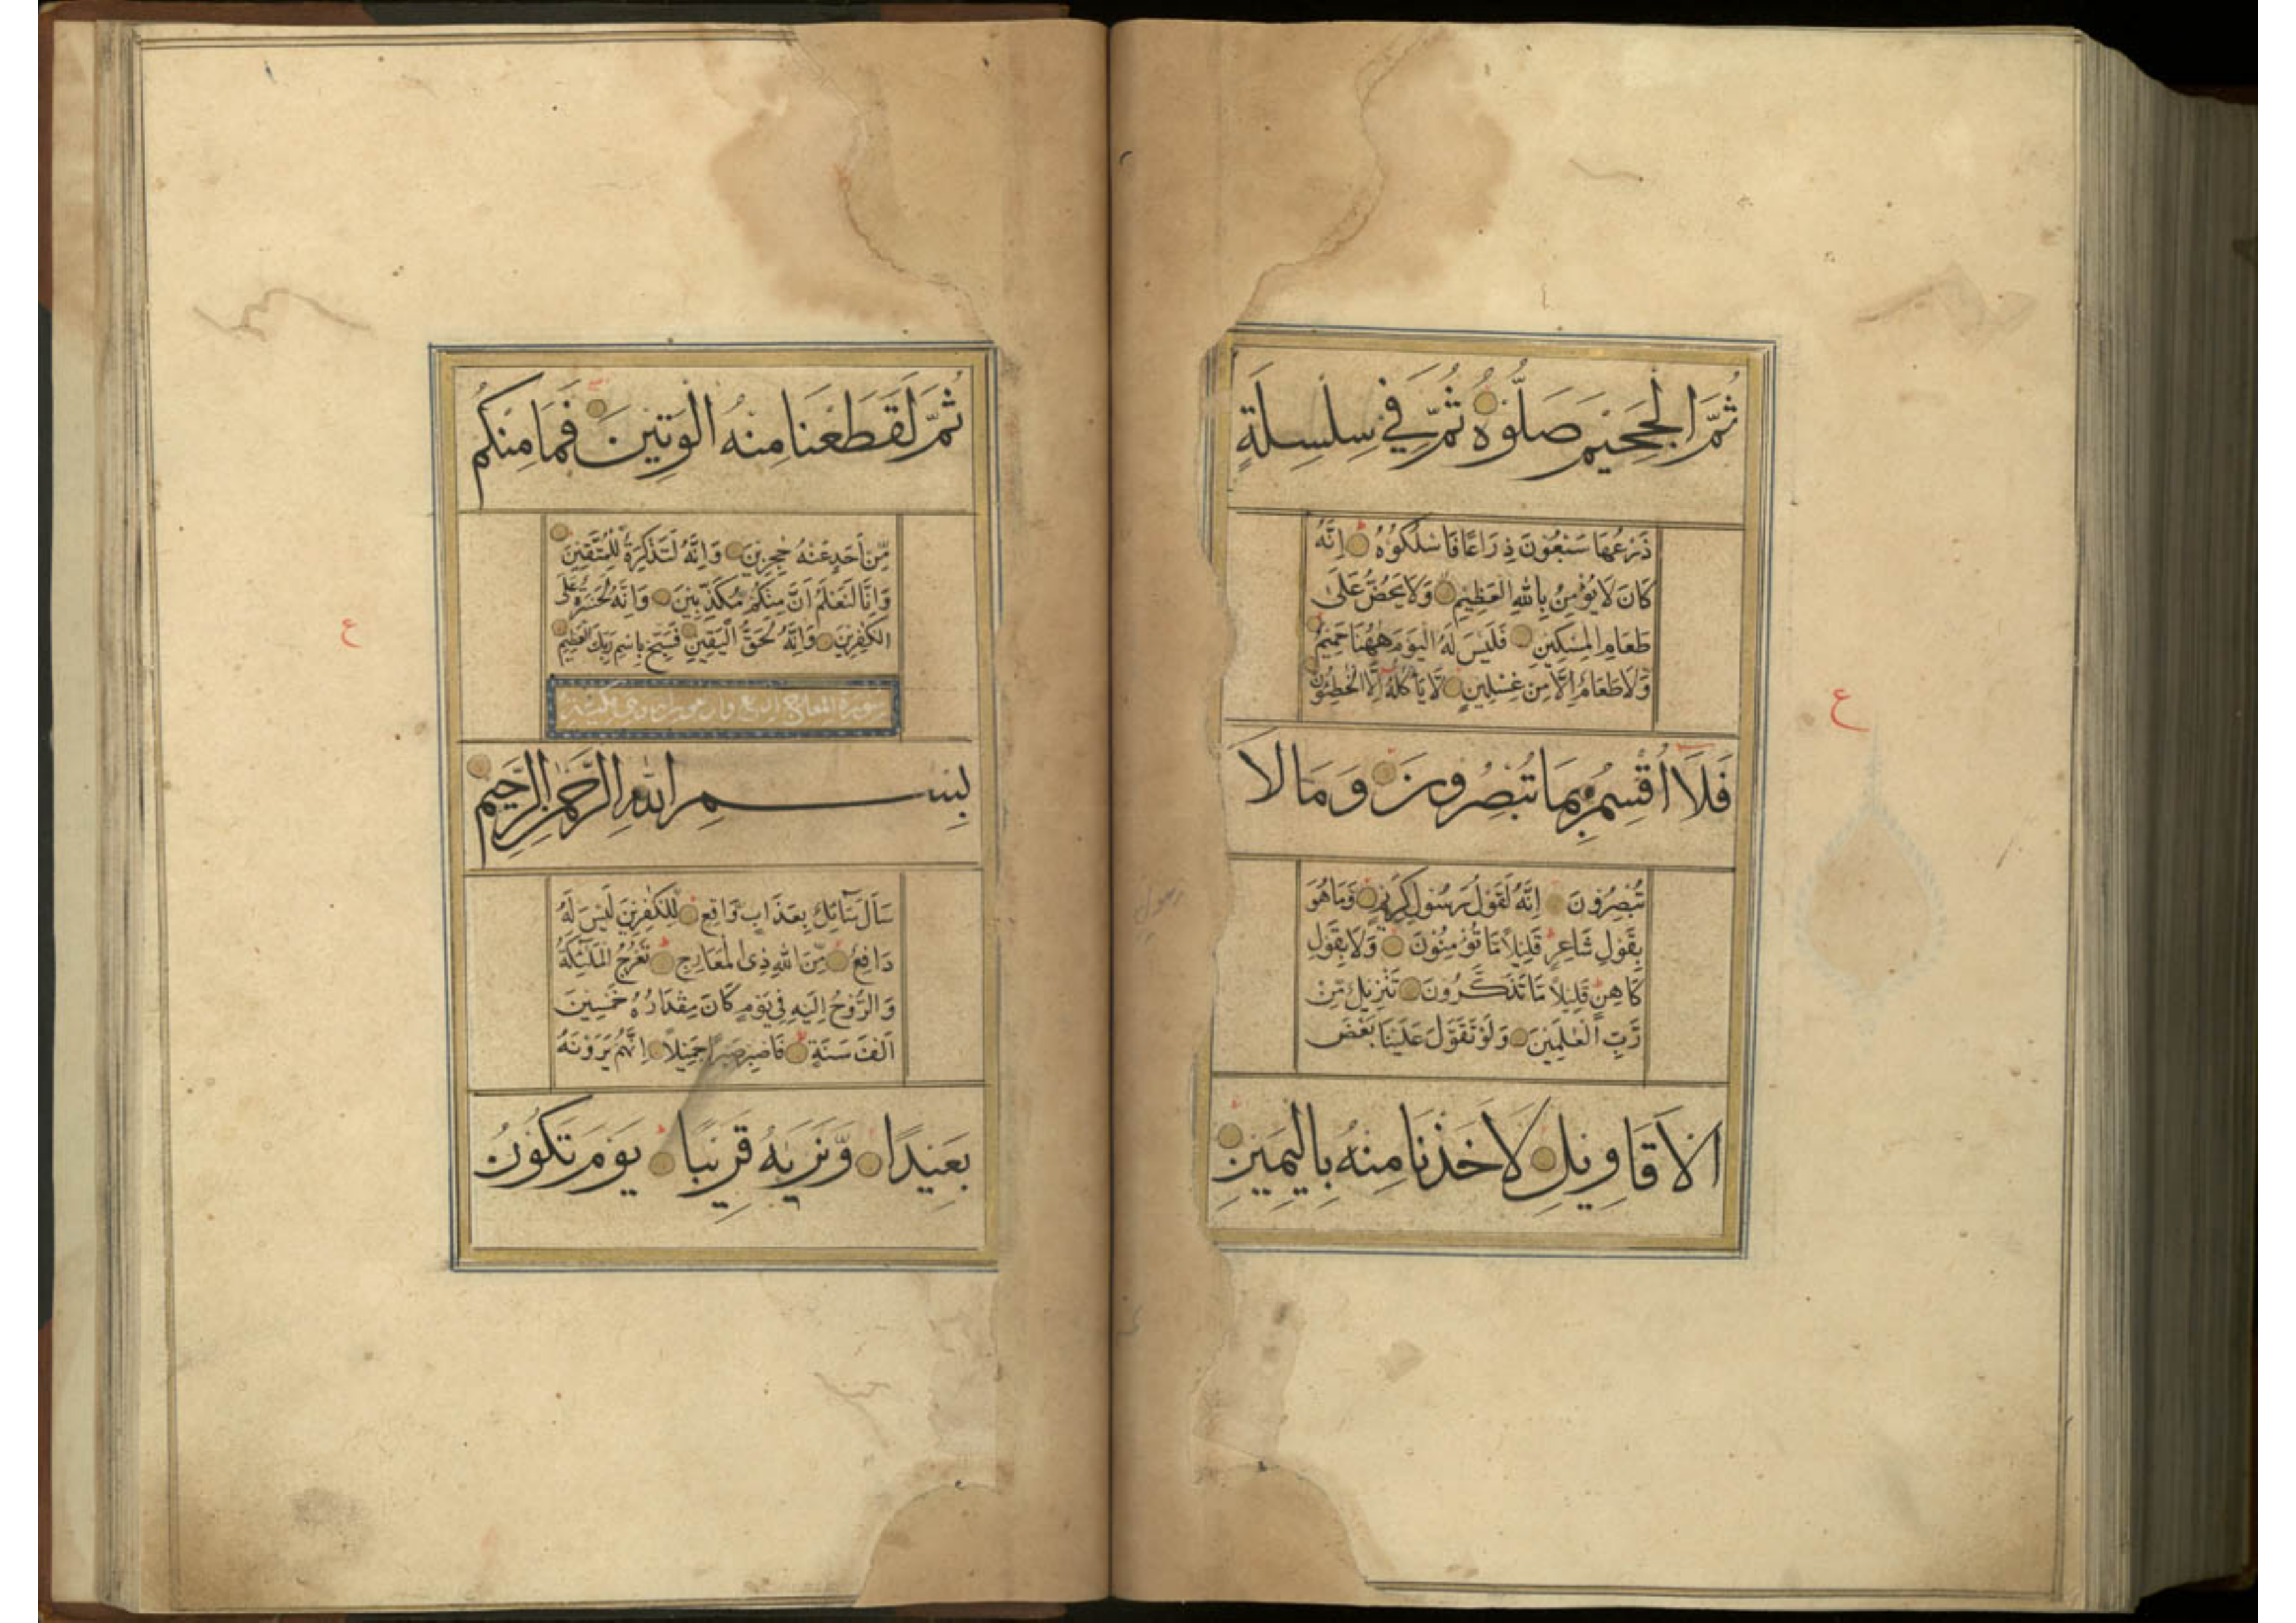 ثُمَّ الْجَحِيمَ صَلُّوهُ ثُمَّ فِي سِلْسِلَةٍ
ذَرْعُهَا سَبْعُونَ ذِرَاعًا فَاسْلُكُوهُ اِنَّهُ
كَانَ لَا يُؤْمِنُ بِاللّٰهِ الْعَظِيمِ وَلَا يَحُضُّ عَلَىٰ
طَعَامِ الْمِسْكِينِ فَلَيْسَ لَهُ الْيَوْمَ هٰهُنَا حَمِيمٌ
وَّلَا طَعَامٌ اِلَّا مِنْ غِسْلِينٍ لَّا يَأْكُلُهُ اِلَّا الْخٰطِئُونَ
فَلَا اُقْسِمُ بِمَا تُبْصِرُونَ وَمَا لَا
تُبْصِرُونَ اِنَّهُ لَقَوْلُ رَسُولٍ كَرِيمٍ وَّمَا هُوَ
بِقَوْلِ شَاعِرٍ قَلِيلًا مَّا تُؤْمِنُونَ وَلَا بِقَوْلِ
كَاهِنٍ قَلِيلًا مَّا تَذَكَّرُونَ تَنْزِيلٌ مِّنْ
رَّبِّ الْعٰلَمِينَ وَلَوْ تَقَوَّلَ عَلَيْنَا بَعْضَ
الْاَقَاوِيلِ لَاَخَذْنَا مِنْهُ بِالْيَمِينِ
ع
رسول
ثُمَّ لَقَطَعْنَا مِنْهُ الْوَتِينَ فَمَا مِنْكُمْ
مِّنْ اَحَدٍ عَنْهُ حٰجِزِينَ وَاِنَّهُ لَتَذْكِرَةٌ لِّلْمُتَّقِينَ
وَاِنَّا لَنَعْلَمُ اَنَّ مِنْكُمْ مُّكَذِّبِينَ وَاِنَّهُ لَحَسْرَةٌ عَلَى
الْكٰفِرِينَ وَاِنَّهُ لَحَقُّ الْيَقِينِ فَسَبِّحْ بِاسْمِ رَبِّكَ الْعَظِيمِ
سورة المعارج اربع واربعون اية وهي مكية
بِسْمِ اللّٰهِ الرَّحْمٰنِ الرَّحِيمِ
سَاَلَ سَآئِلٌ بِعَذَابٍ وَّاقِعٍ لِّلْكٰفِرِينَ لَيْسَ لَهُ
دَافِعٌ مِّنَ اللّٰهِ ذِي الْمَعَارِجِ تَعْرُجُ الْمَلٰٓئِكَةُ
وَالرُّوحُ اِلَيْهِ فِي يَوْمٍ كَانَ مِقْدَارُهُ خَمْسِينَ
اَلْفَ سَنَةٍ فَاصْبِرْ صَبْرًا جَمِيلًا اِنَّهُمْ يَرَوْنَهُ
بَعِيدًا وَّنَرٰيهُ قَرِيبًا يَوْمَ تَكُونُ
ع